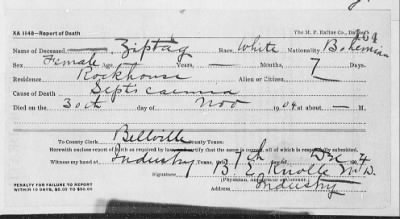 XA 1148—Report of Death The M. P. Exline Co., Dallas 164
Name of Deceased, — Ziptag Race, White Nationality, Bohemian
Sex, Female Age, Years, — Months, 7 Days.
Residence Rockhouse Alien or Citizen.
Cause of Death Septicaemia
Died on the 30th day of Nov 1904 at about — M.
To County Clerk, Bellville County Texas:
Herewith enclose report of death as required by law, and certify that the same is correct of all of which is respectfully submitted.
Witness my hand at Industry Texas, this 7th day Dec 1904
Signature B. E. Knolle M.D.
PENALTY FOR FAILURE TO REPORT
WITHIN DAYS, $5.00 TO $50.00
Address Industry